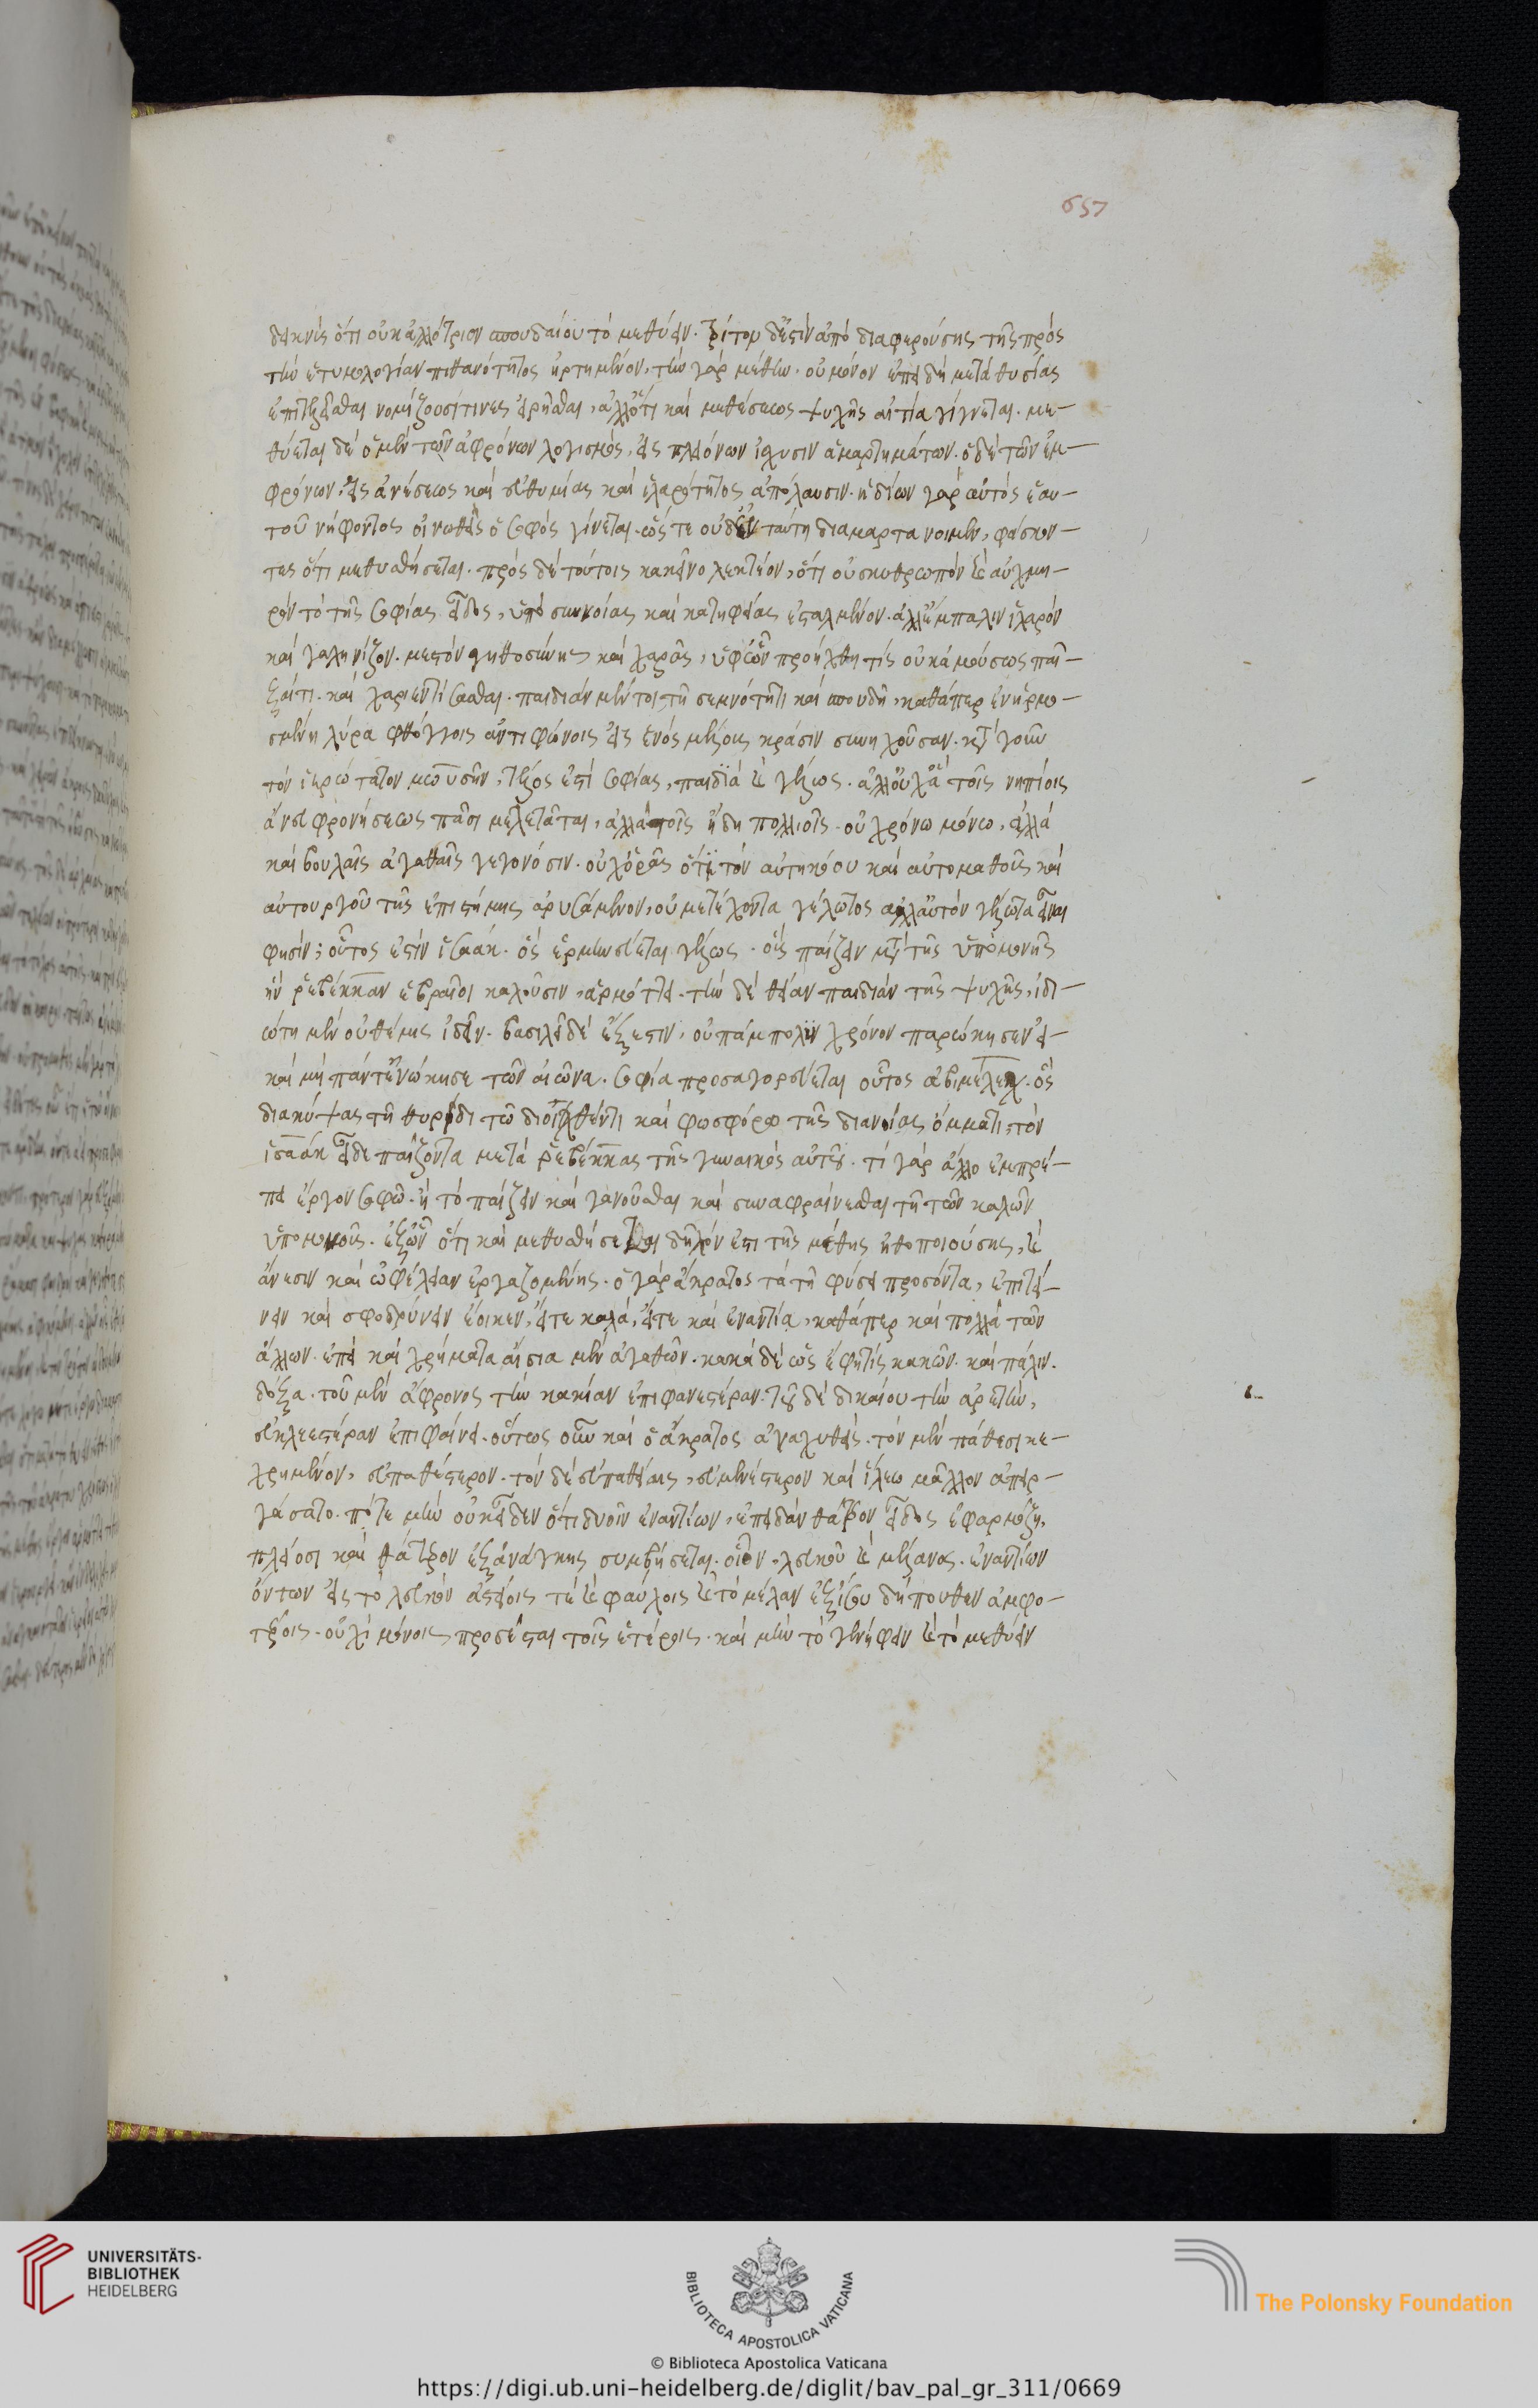 657
δεικνὺς ὅτι οὐκ ἀλλότριον σπουδαίου τὸ μεθύειν. τρίτον δ' ἐστὶν ἀπὸ διαφερούσης τῆς πρὸς
τὴν ἐτυμολογίαν πιθανότητος ἠρτημένον. τὴν γὰρ μέθην. οὐ μόνον ἐπειδὴ μετὰ θυσίας
ἐπιτελεῖσθαι νομίζουσί τινες εἰρῆσθαι, ἀλλ' ὅτι καὶ μεθέσεως ψυχῆς αἰτία γίγνεται. με-
θύεται δὲ ὁ μὲν τῶν ἀφρόνων λογισμὸς, εἰς πλειόνων ἴσχυσιν ἁμαρτημάτων. ὁ δὲ τῶν ἐμ-
φρόνων, εἰς ἀνέσεως καὶ εὐθυμίας καὶ ἱλαρότητος ἀπόλαυσιν. ἡδίων γὰρ αὐτὸς ἑαυ-
τοῦ νήφοντος οἰνωθεὶς ὁ σοφὸς γίνεται. ὥς τε οὐδ' ἐν ταύτῃ διαμαρτάνοιμεν, φάσκον-
τες ὅτι μεθυσθήσεται. πρὸς δὲ τούτοις κἀκεῖνο λεκτέον, ὅτι οὐ σκυθρωπὸν καὶ αὐχμη-
ρὸν τὸ τῆς σοφίας εἶδος, ὑπὸ συννοίας καὶ κατηφείας ἐσταλμένον. ἀλλ' ἔμπαλιν ἱλαρὸν
καὶ γαληνίζον. μεστὸν γηθοσύνης καὶ χαρᾶς, ὑφ' ὧν προήχθη τίς οὐκ ἀμούσως παῖ-
ξαί τι. καὶ χαριεντίσασθαι. παιδιὰν μέντοι τῇ σεμνότητι καὶ σπουδῇ, καθάπερ ἐν ἡρμο-
σμένῃ λύρᾳ φθόγγοις ἀντιφώνοις εἰς ἑνὸς μέλους κρᾶσιν συνηχοῦσαν. κατὰ γοῦν
τὸν ἱερώτατον μωϋσῆν, τέλος ἐστὶ σοφίας, παιδιὰ καὶ γέλως. ἀλλ' οὐχ ἃ τοῖς νηπίοις
ἄνευ φρονήσεως πᾶσι μελετᾶται, ἀλλὰ τοῖς ἤδη πολιοῖς. οὐ χρόνῳ μόνῳ, ἀλλὰ
καὶ βουλαῖς ἀγαθαῖς γεγονόσιν. οὐχ ὁρᾷς ὅτι τὸν αὐτηκόου καὶ αὐτομαθοῦς καὶ
αὐτουργοῦ τῆς ἐπιστήμης ἀρυσάμενον, οὐ μετέχοντα γέλωτος ἀλλ' αὐτὸν γέλωτα εἶναι
φησίν; οὗτος ἐστὶν ἰσαάκ. ὃς ἑρμηνεύεται γέλως. ᾧ παίζειν μετὰ τῆς ὑπομονῆς
ἣν ῥεβέκκαν ἑβραῖοι καλοῦσιν, ἁρμόττει. τὴν δὲ θείαν παιδιὰν τῆς ψυχῆς, ἰδι-
ώτῃ μὲν οὐ θέμις ἰδεῖν. βασιλεῖ δὲ ἔξεστιν, ᾧ πάμπολυν χρόνον παρῴκησεν εἰ
καὶ μὴ πάντ' ἐνῴκησε τὸν αἰῶνα. σοφία προσαγορεύεται οὗτος ἀβιμέλεχ. ὃς
διακύψας τῇ θυρίδι τῷ διοιχθέντι καὶ φωσφόρῳ τῆς διανοίας ὄμματι, τὸν
ἰσαὰκ εἶδε παίζοντα μετὰ ῥεβέκκας τῆς γυναικὸς αὐτοῦ. τί γὰρ ἄλλο ἐμπρέ-
πει ἔργον σοφῷ. ἢ τὸ παίζειν καὶ γανοῦσθαι καὶ συνευφραίνεσθαι τῇ τῶν καλῶν
ὑπομονῇ. ἐξ ὧν ὅτι καὶ μεθυσθήσεται δῆλόν ἐστι τῆς μέθης ἠθοποιούσης, καὶ
ἄνεσιν καὶ ὠφέλειαν ἐργαζομένης. ὁ γὰρ ἄκρατος τὰ τῇ φύσει προσόντα, ἐπιτεί-
νειν καὶ σφοδρύνειν ἔοικεν, εἴτε καλὰ, εἴτε καὶ ἐναντία, καθάπερ καὶ πολλὰ τῶν
ἄλλων. ἐπεὶ καὶ χρήματα αἴτια μὲν ἀγαθῶν. κακὰ δὲ ὡς ἔφη τίς κακῶν. καὶ πάλιν.
δόξα. τοῦ μὲν ἄφρονος τὴν κακίαν ἐπιφανεστέραν. τοῦ δὲ δικαίου τὴν ἀρετὴν,
εὐκλεεστέραν ἐπιφαίνει. οὕτως οὖν καὶ ὁ ἄκρατος ἀναχυθεὶς. τὸν μὲν πάθεσι κε-
χρημένον, εὐπαθέστερον. τὸν δὲ εὐπαθείαις, εὐμενέστερον καὶ ἵλεω μᾶλλον ἀπειρ-
γάσατο. πότε μὴν οὐκ εἶδεν ὅτι δυοῖν ἐναντίων, ἐπειδὰν θάτερον εἶδος ἐφαρμόζῃ,
πλείοσι καὶ θάτερον ἐξ ἀνάγκης συμβήσεται. οἷον, λευκοῦ καὶ μέλανος. ἐναντίων
ὄντων εἰς τὸ λευκὸν ἀστείοις τὲ καὶ φαύλοις καὶ τὸ μέλαν ἐξίσου δήπουθεν ἀμφο-
τέροις. οὐχὶ μόνοις προσέσται τοῖς ἑτέροις. καὶ μὴν τό γε νήφειν καὶ τὸ μεθύειν
UNIVERSITÄTS-
BIBLIOTHEK
HEIDELBERG
BIBLIOTECA APOSTOLICA VATICANA
The Polonsky Foundation
© Biblioteca Apostolica Vaticana
https://digi.ub.uni-heidelberg.de/diglit/bav_pal_gr_311/0669